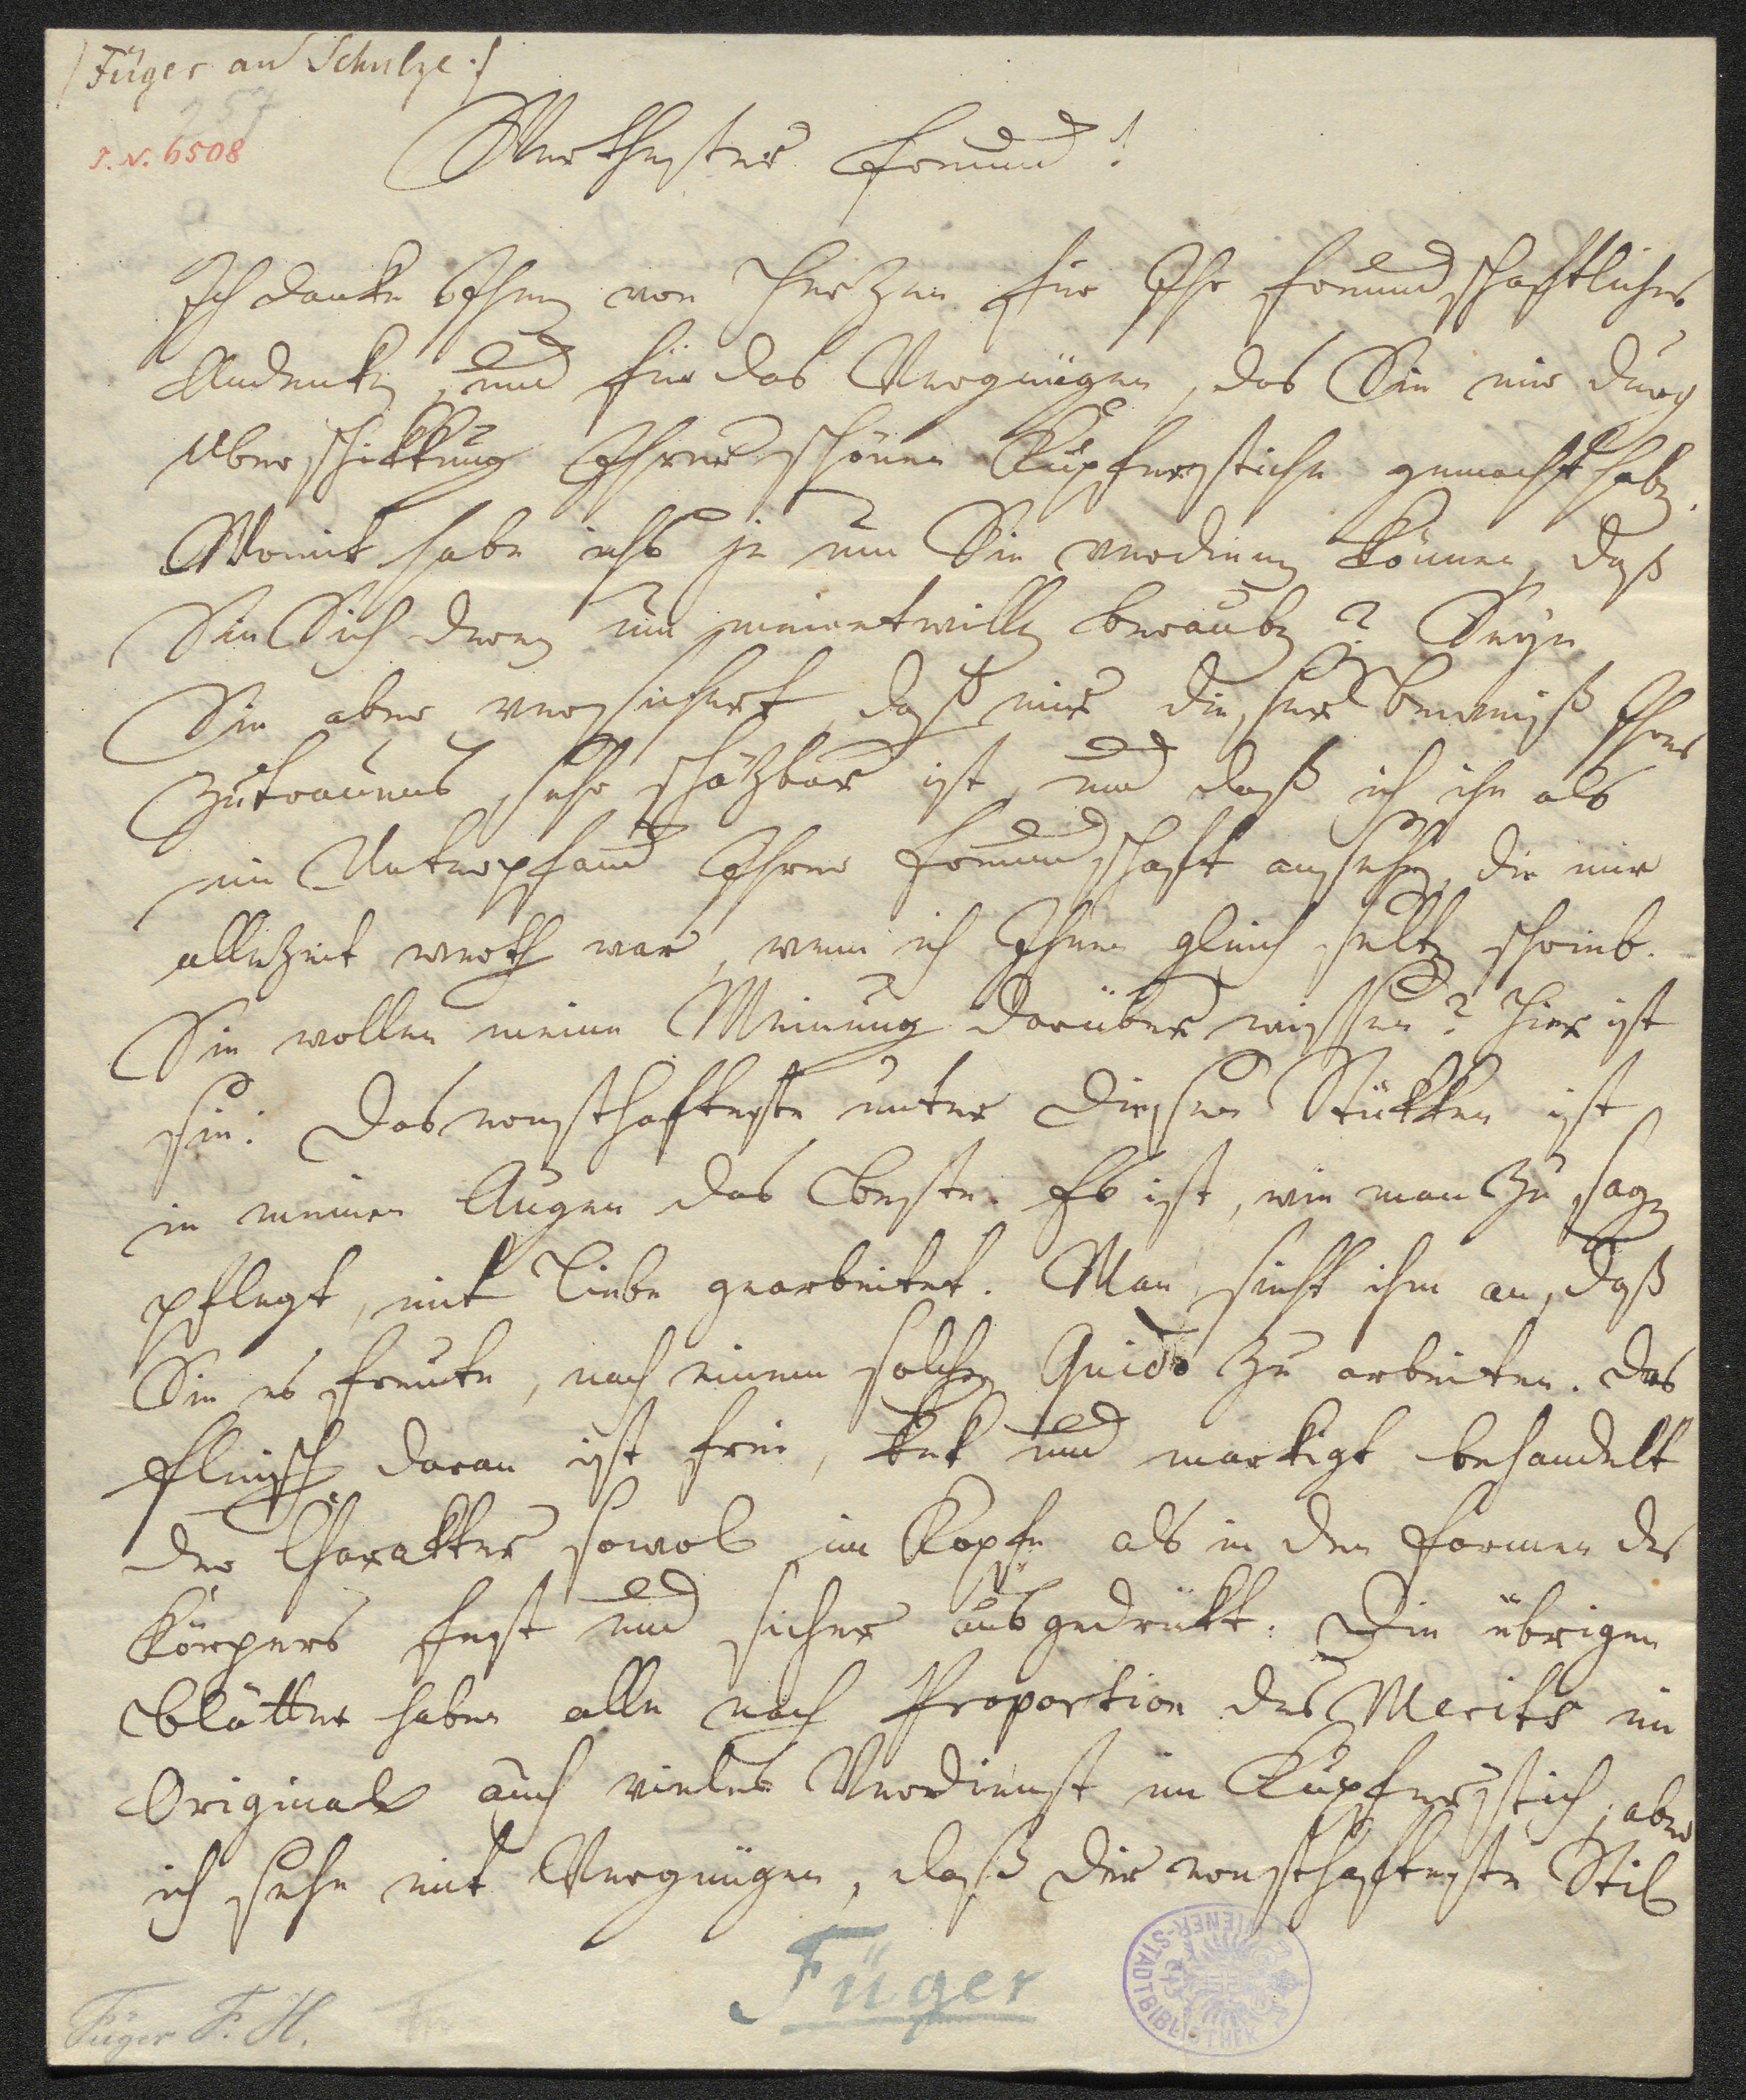 /Füger an Schulze./
257
I. N. 6508
Werthester Freund!
Ich danke Ihnen von Herzen für Ihr freundschaftliches
Andenken, und für das Vergnügen, das Sie mir durch
Überschikkung Ihrer schönen Kupferstiche gemacht haben.
Womit habe ichs je um Sie verdienen können, daß
Sie Sich deren um meinetwillen berauben? Seyn
Sie aber versichert, daß mir dieser Beweiß Ihres
Zutrauens sehr schäzbar ist, und daß ich ihn als
ein Unterpfand Ihrer Freundschaft ansehe, die mir
allezeit werth war, wenn ich Ihnen gleich selten schrieb.
Sie wollen meine Meinung darüber wissen? Hier ist
sie: Das ernsthafteste unter diesen Stükken ist
in meinen Augen das Beste. Es ist, wie man zu sagen
pflegt, mit Liebe gearbeitet. Man sieht ihm an, daß
Sie es freute, nach einem solchen Guido zu arbeiten. Das
Fleisch daran ist frei, kek und markigt behandelt
der Charakter sowol im Kopfe als in den Formen des
Körpers fest und sicher ausgedrükt. Die übrigen
Blätter haben alle nach Proportion des Merits im
Original auch vieles Verdienst im Kupferstich; aber
ich sehe mit Vergnügen, daß der ernsthafteste Stil
Füger
WIENER-STADTBIBLIOTHEK
Füger F. H.